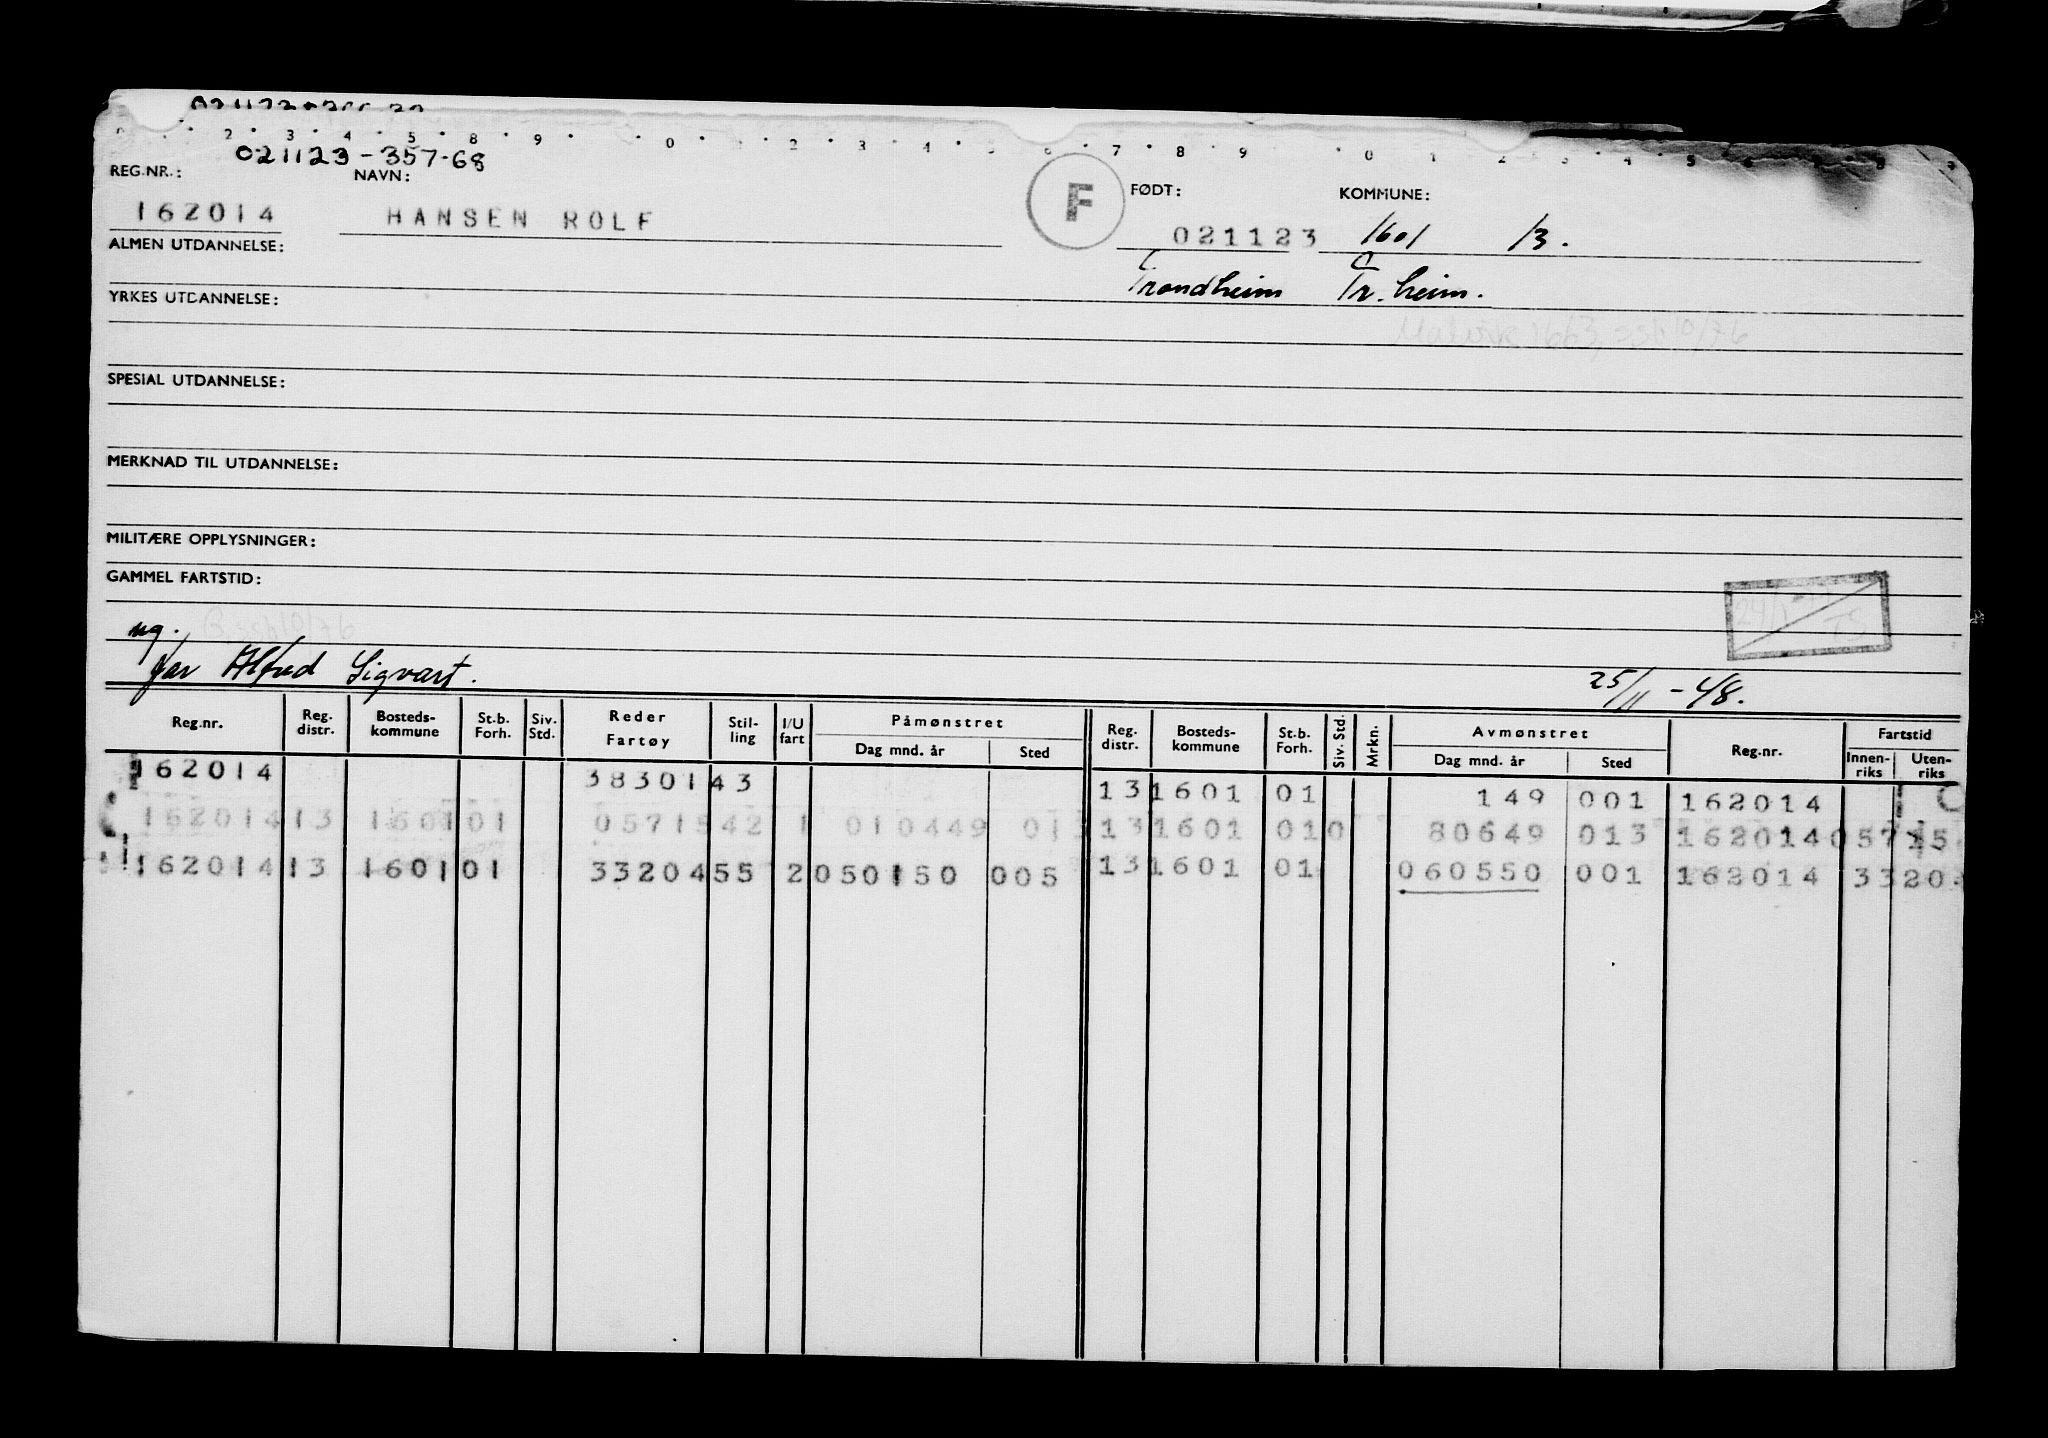 2 3 4 5 8 9 0 1 2 3 4 7 8 9 0 1 2 3 4 5
021123-357-68
REG.NR.: NAVN: F FØDT: KOMMUNE:
162014 HANSEN ROLF 021123 1601 13.
ALMEN UTDANNELSE:
Trondheim Tr.heim.
YRKES UTDANNELSE:
SPESIAL UTDANNELSE:
MERKNAD TIL UTDANNELSE:
MILITÆRE OPPLYSNINGER:
GAMMEL FARTSTID:
ug.
far Alfred Sigvart. 25/11-48.
Reg.nr. Reg. distr. Bosteds-kommune St.b. Forh. Siv. Std. Reder Fartøy Stil-ling I/U fart Påmønstret Dag mnd. år Sted Reg. distr. Bosteds-kommune St.b. Forh. Siv. Std. Mrkn. Avmønstret Dag mnd. år Sted Reg.nr. Fartstid Innen-riks Uten-riks
162014 3830143 13 1601 01 149 001 162014
162014 13 1601 01 0571542 1 010449 013 13 1601 010 80649 013 162014 05715
162014 13 1601 01 3320455 2 050150 005 13 1601 01 060550 001 162014 3320